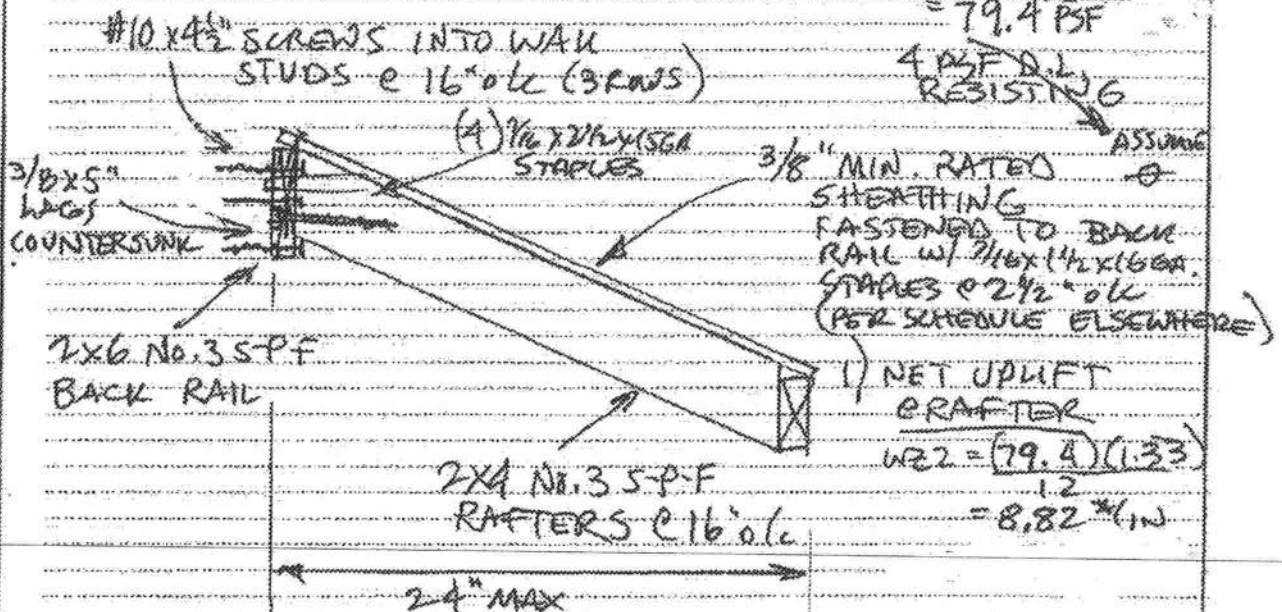 = 79.4 PSF
#10 x 4½" SCREWS INTO WALL
STUDS @ 16" o/c (3 ROWS)
4 PSF D.L.
RESISTING
ASSUME
0
(4) 7/16 x 2 1/2 x 15GA
STAPLES
3/8 x 5"
LAGS
COUNTERSUNK
3/8" MIN. RATED
SHEATHING
FASTENED TO BACK
RAIL W/ 7/16 x 1 1/2 x 16 GA.
STAPLES @ 2 1/2" o/c
(PER SCHEDULE ELSEWHERE)
2x6 No.3 S-P-F
BACK RAIL
1) NET UPLIFT
@ RAFTER
WZ2 = (79.4)(1.33)
12
= 8.82 #/IN
2x4 No.3 S-P-F
RAFTERS @ 16" o/c
24" MAX